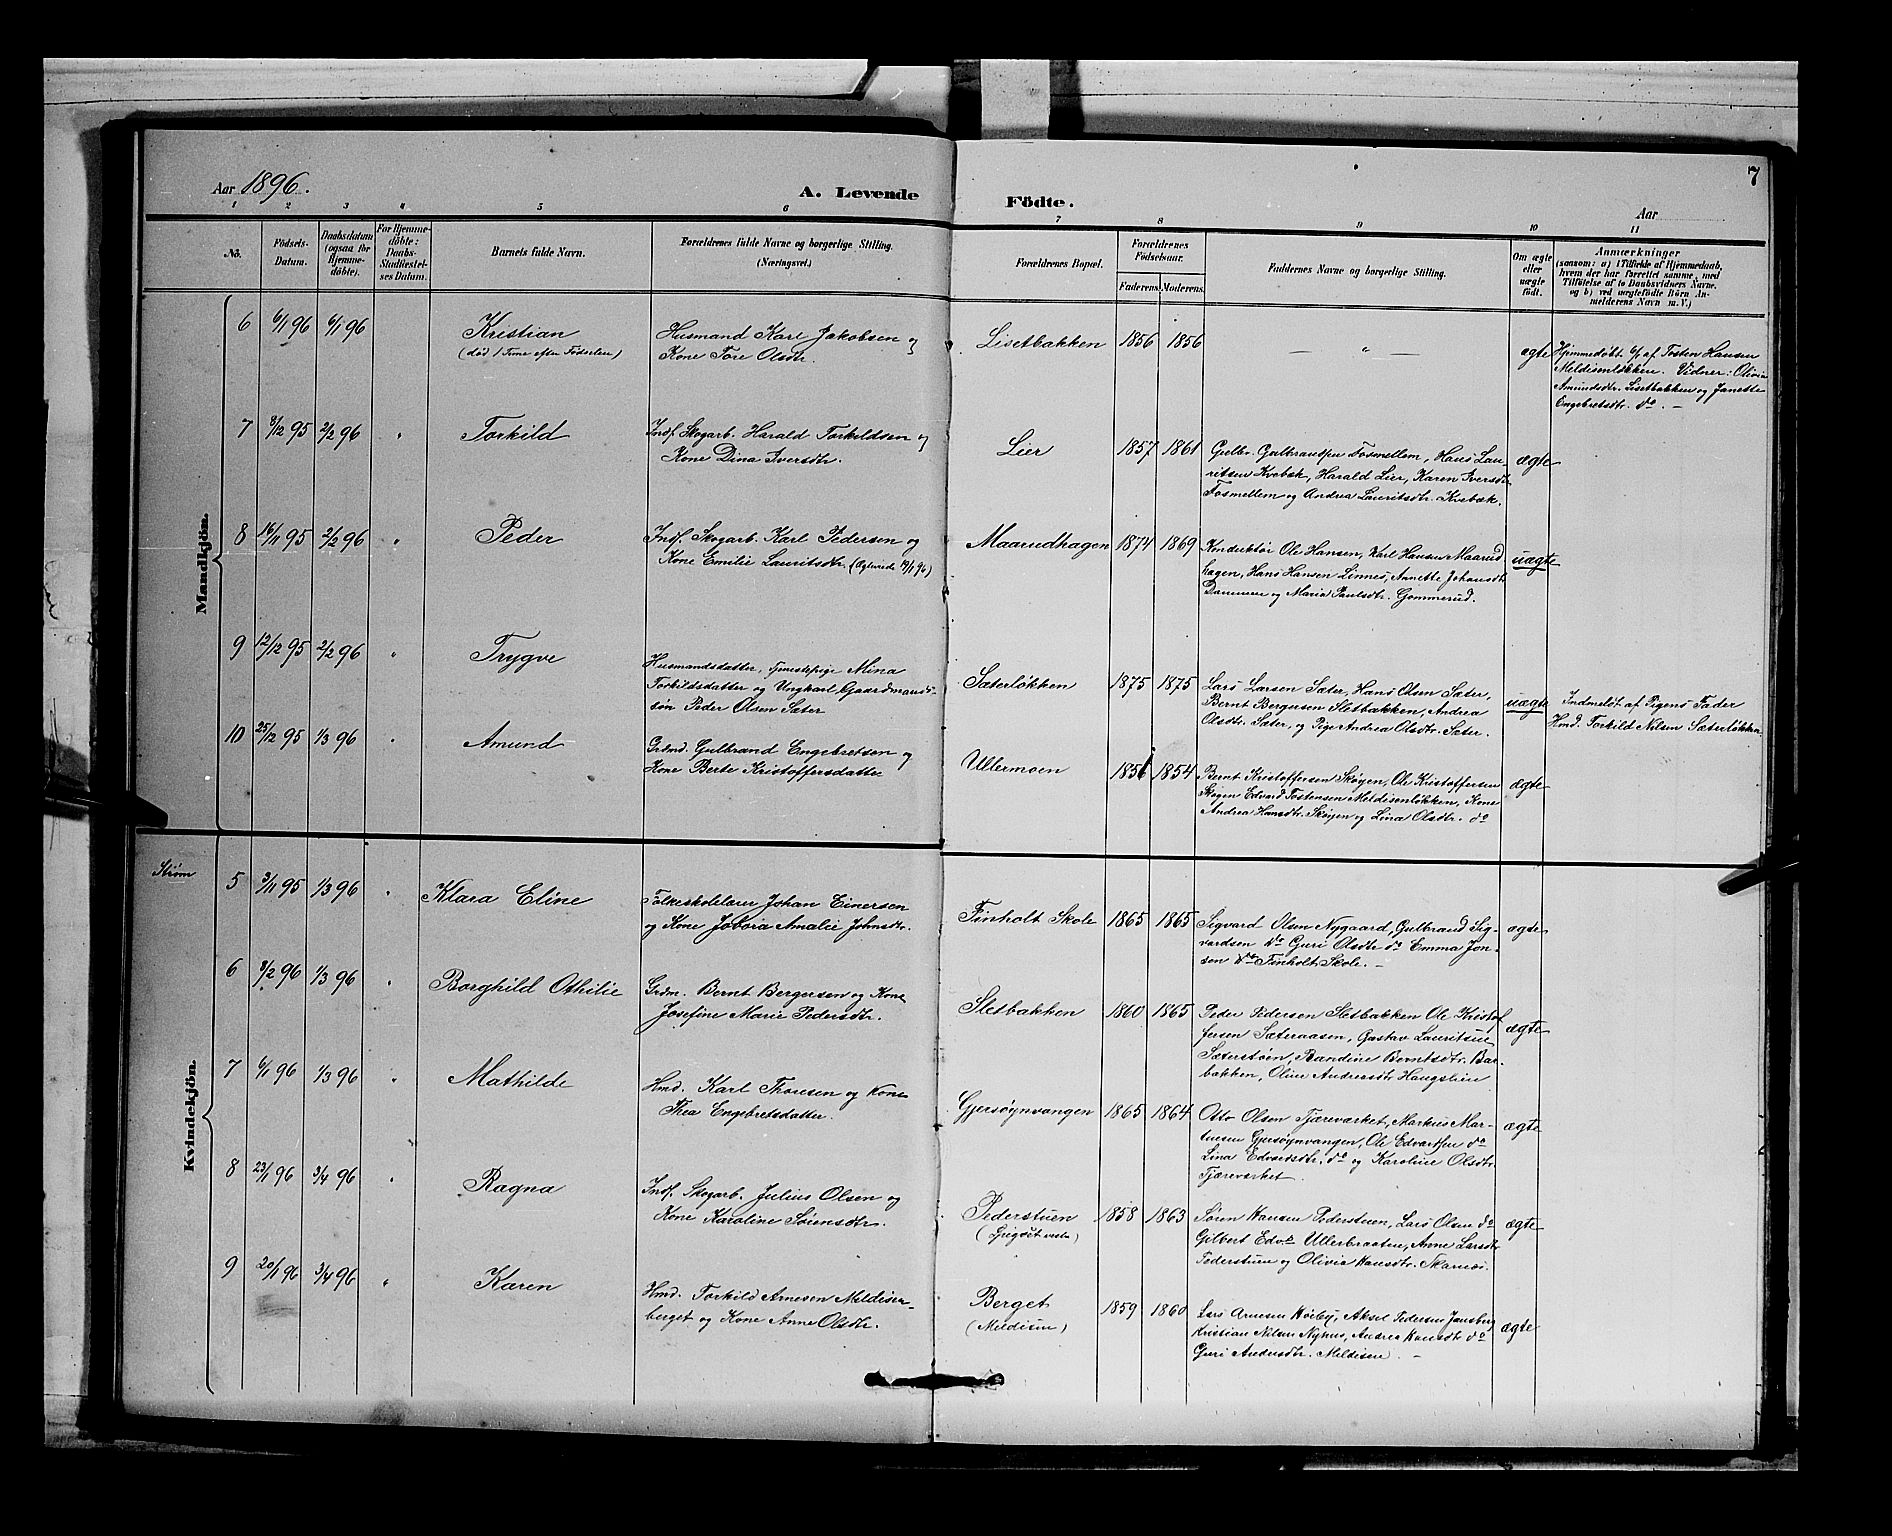 Aar 1896.
A. Levende
Födte.
Aar
7
1 2 3 4 5 6 7 8 9 10 11
No.
Födsels-Datum.
Daabsdatum (ogsaa for Hjemmedöbte).
For Hjemmedöbte: Daabs-Stadfæstelses Datum.
Barnets fulde Navn.
Forældrenes fulde Navne og borgerlige Stilling.
(Næringsvei.)
Forældrenes Bopæl.
Forældrenes Födselsaar.
Faderens. Moderens.
Faddernes Navne og borgerlige Stilling.
Om ægte eller uægte födt.
Anmærkninger
(saasom: a) i Tilfælde af Hjemmedaab,
hvem der har forrettet samme, med
Tilföielse af to Daabsvidners Navne.
og b) ved uægtefödte Börn An-
melderens Navn m. V.)
Mandkjön.
6 6/1 96 6/1 96 Kristian
(död 1 Time efter Födselen)
Husmand Karl Jakobsen og
Kone Tore Olsdtr.
Lisetbakken 1856 1856 — „ — ægte
Hjemmedöbt 6/1 af Tosten Hansen
Meldisenløkken. Vidner: Olivia
Amundsdtr. Lisetbakken og Janette
Engebretsdtr. do. —
7 8/12 95 2/2 96 „ Torkild
Indf. Skogarb. Harald Torkildsen og
Kone Dina Iversdtr.
Lier 1857 1861
Gulbr. Gulbrandsen Fosmellem, Hans Lau-
ritsen Kvebæk, Harald Lier, Karen Iversdtr.
Fosmellem og Andrea Lauritsdtr. Kvebæk.
ægte
8 16/11 95 2/2 96 „ Peder
Indf. Skogarb. Karl Pedersen og
Kone Emilie Lauritsdtr. (Ægteviede 19/1 96)
Maarudhagen 1874 1869
Konduktör Ole Hansen, Karl Hansen Maarud
hagen, Hans Hansen Linnes, Annette Johansdtr.
Dammen og Maria Paulsdtr. Gommerud.
uægte
9 12/12 95 2/2 96 „ Trygve
Husmandsdatter, Tjenestepige Mina
Torkildsdatter og Ungkarl Gaardmands-
sön Peder Olsen Sæter
Sæterløkken 1875 1875
Lars Larsen Sæter, Hans Olsen Sæter,
Bernt Bergersen Sletbakken, Andrea
Olsdtr. Sæter, og Pige Andrea Olsdtr. Sæter.
uægte
Indmeldt af Pigens Fader
Hmd. Torkild Nilsen Sæterløkken
10 25/12 95 1/3 96 „ Amund
Grdmd. Gulbrand Engebretsen og
Kone Berte Kristoffersdatter
Ullermoen 1851 1854
Bernt Kristoffersen Skøyen, Ole Kristoffersen
Skøyen Edvard Tostensen Meldisenløkken, Kone
Andrea Hansdtr. Skøyen og Lina Olsdtr. do
ægte
Strøm
Kvindekjön.
5 3/11 95 1/3 96 „ Klara Eline
Folkeskolelærer Johan Einersen
og Kone Jobora Amalie Johnsdtr.
Finholt Skole 1865 1865
Sigvard Olsen Nygaard, Gulbrand Sig-
vardsen do Guri Olsdtr do Emma Jon-
sen do Finholt Skole. —
ægte
6 8/2 96 1/3 96 „ Borghild Othilie
Grdm. Bernt Bergersen og Kone
Josefine Marie Pedersdtr.
Sletbakken 1860 1865
Peder Pedersen Sletbakken Ole Kristof
fersen Sæteraasen, Gustav Lauritsen
Sæterstøen, Randine Berntsdtr. Bar-
bakken, Oline Andreasdtr Haugstein
ægte
7 6/1 96 1/3 96 „ Mathilde
Hmd. Karl Thonsen og Kone
Thea Engebretsdatter.
Gjersøynvangen 1865 1864
Otto Olsen Tjæreværket, Markus Mar-
tinsen Gjersøynvangen, Ole Edvardsen do
Lina Edvardsdtr. do og Karoline Olsdtr.
Tjæreværket.
ægte
8 23/1 96 3/4 96 „ Ragna
Indf. Skogarb. Julius Olsen og
Kone Karoline Sörensdtr.
Pederstuen 1858 1863
Sören Hansen Pederstuen, Lars Olsen do
Gilbert Edv. Ullerbraaten, Anne Larsdtr
Pederstuen og Olivia Hansdtr. Skarnes.
ægte
9 20/1 96 3/4 96 „ Karen
Hmd. Torkild Arnesen Meldisen-
berget og Kone Anne Olsdtr.
Berget
(Meldisen)
1859 1860
Lars Arnesen Høiby, Aksel Pedersen Jonsberg
Kristian Nilsen Nyhus, Andrea Hansdtr do
Guri Andersdtr. Meldisen. —
ægte